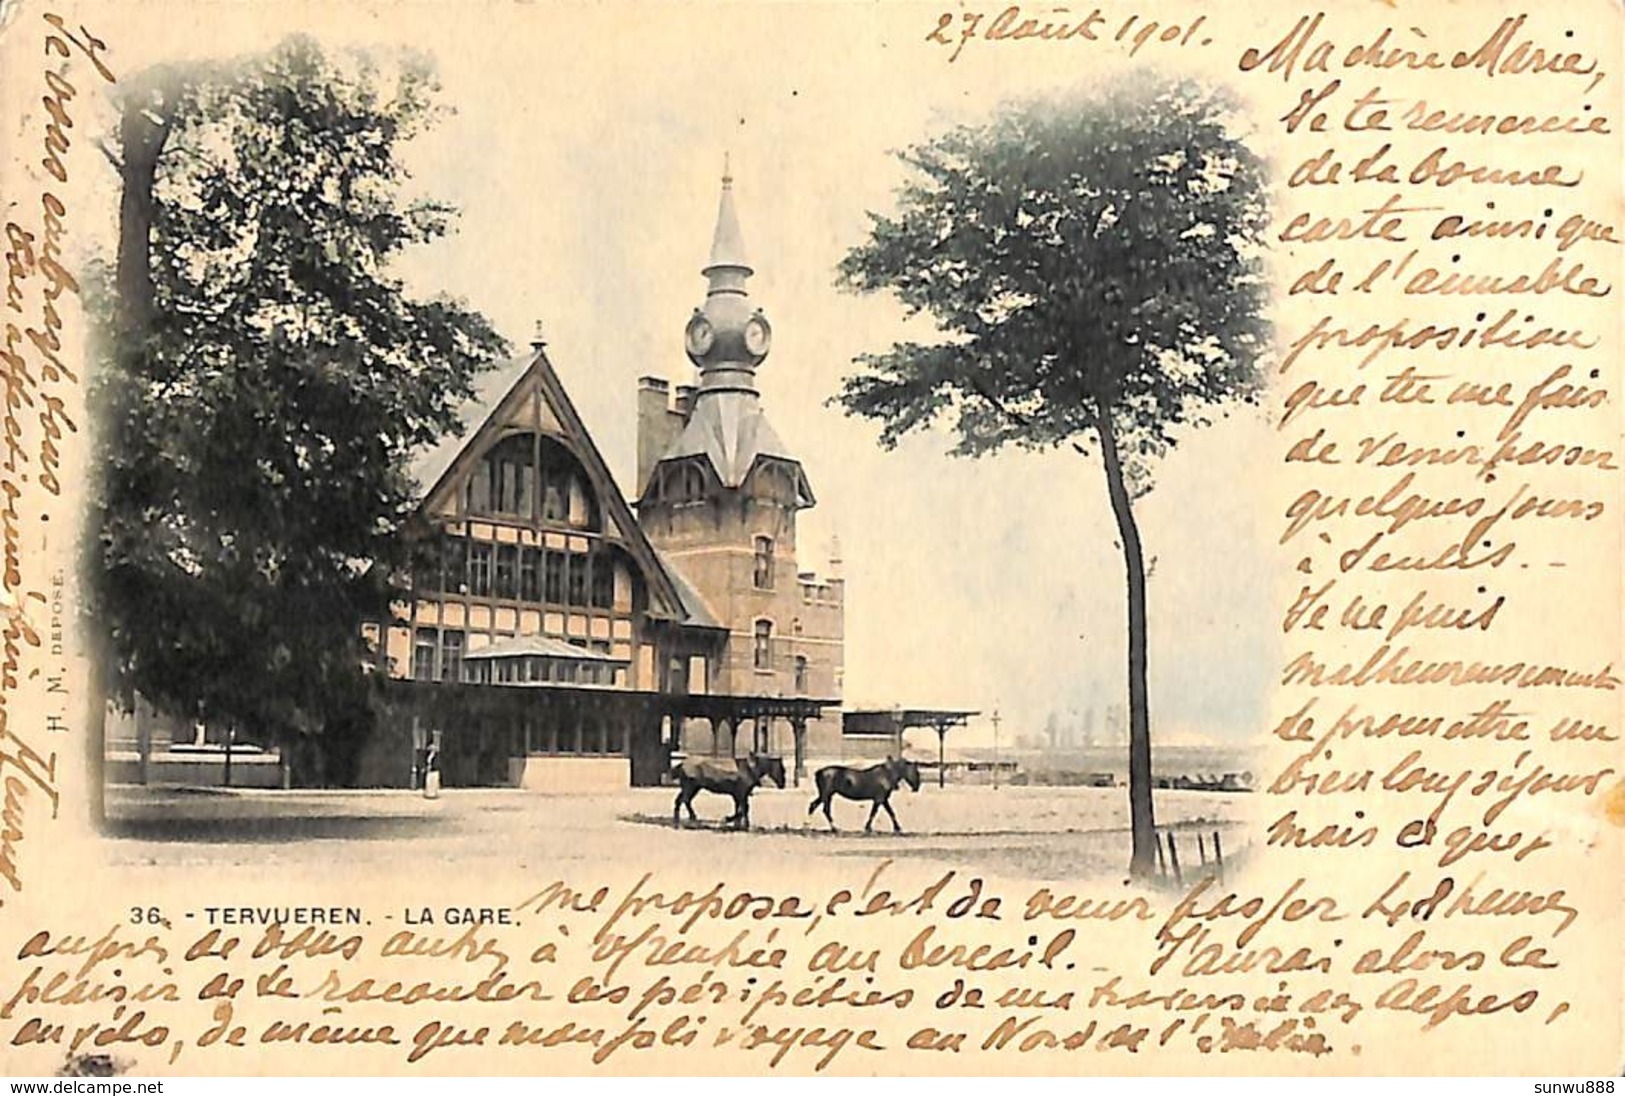 27 Août 1901.
Ma chère Marie,
Je te remercie
de ta bonne
carte ainsi que
de l'aimable
proposition
que tu me fais
de venir passer
quelques jours
à Senlis. -
Je ne puis
malheureusement
te promettre un
bien long séjour
mais ce que je
me propose, c'est de venir passer 48 heures
auprès de vous autres à au Bercail. - J'aurai alors le
plaisir de te raconter les péripéties de ma traversée des Alpes,
en vélo, de même que mon joli voyage au Nord de l'Italie.
Je vous embrasse tous. -
Ton affectionné frère Henri.
H. M. DEPOSÉ.
36. - TERVUEREN. - LA GARE.
delcampe.net
sunwu888